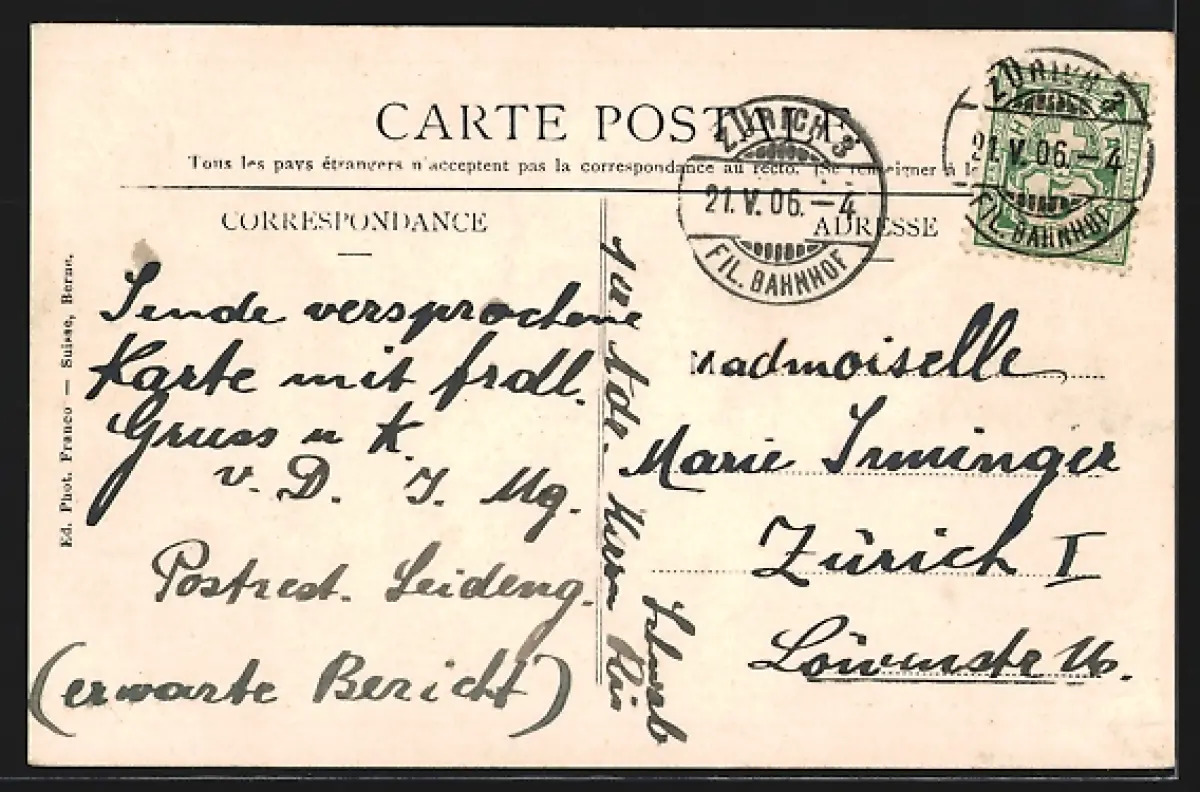 CARTE POSTALE
Tous les pays étrangers n'acceptent pas la correspondance au recto. (Se renseigner à la
CORRESPONDANCE
ADRESSE
ZÜRICH 3
21.V.06.–4
FIL. BAHNHOF
ZÜRICH 3
21.V.06.–4
FIL. BAHNHOF
Ed. Phot. Franco — Suisse, Berne.
Sende versprochene
Karte mit frdl.
Gruss u K.
v. D. J. Mg.
Postrest. Leideng.
(erwarte Bericht)
Adr. Herrn
Madmoiselle
Marie Irminger
Zürich I
Löwenstr 16.